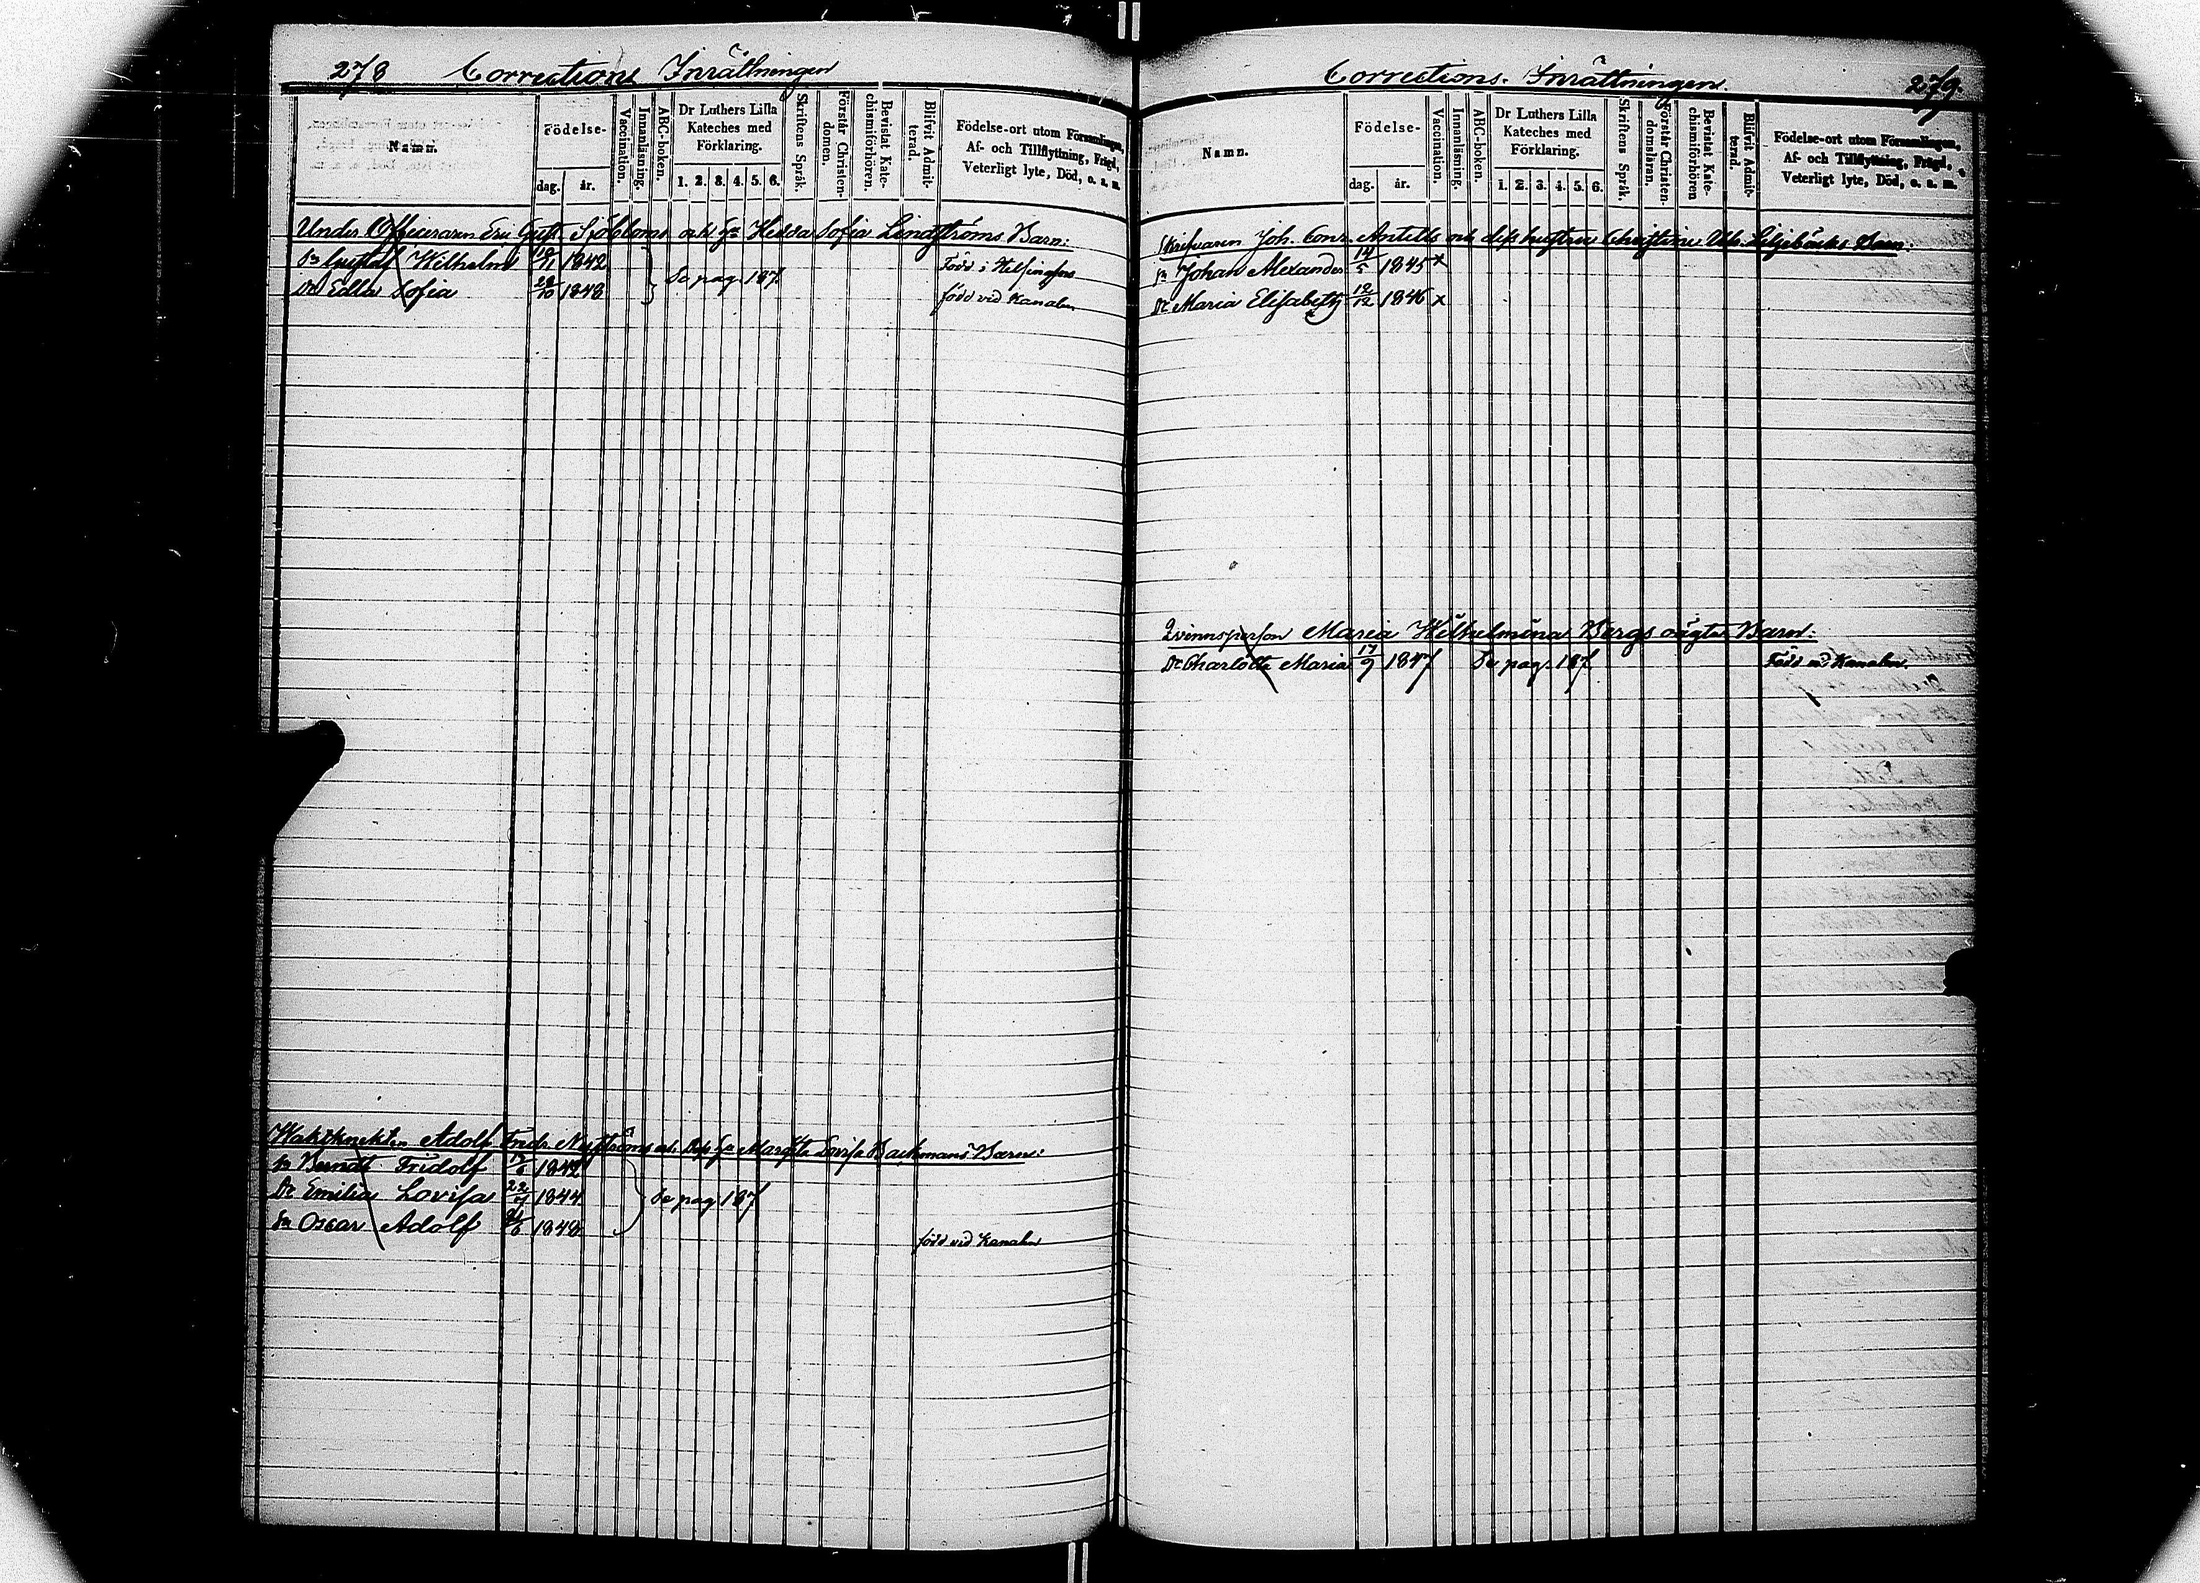 278 Corrections Inrättningen
Namn.
Födelse-
dag. år.
Vaccination.
Innanläsning.
ABC-boken.
Dr Luthers Lilla
Kateches med
Förklaring.
1. 2. 3. 4. 5. 6.
Skriftens Språk.
Förstår Christen-
domen.
Bevistat Kate-
chismiförhören.
Blifvit Admit-
terad.
Födelse-ort utom Församlingen,
Af- och Tillflyttning, Frägd,
Veterligt lyte, Död, o. s. m.
Under Officeraren Eric Gust. Sjöbloms och H:s Hedda Sofia Lindströms Barn:
Sn Gustaf Wilhelm 18/11 1842 Född i Helsingfors
Dr Edla Sofia 22/10 1848 Se pag. 187. född vid Kanalen
Waktknekten Adolf Fredr. Nyströms och Dess Hu Margta Lovisa Backmans Barn:
Sn Berndt Fridolf 12/6 1842
Dr Emilia Lovisa 22/4 1844 Se pag 187
Sn Oscar Adolf 1848 född vid Kanalen
Corrections-Inrättningen. 279.
Namn.
Födelse-
dag. år.
Vaccination.
Innanläsning.
ABC-boken.
Dr Luthers Lilla
Kateches med
Förklaring.
1. 2. 3. 4. 5. 6.
Skriftens Språk.
Förstår Christen-
domsläran.
Bevistat Kate-
chismiförhören
Blifvit Admit-
terad.
Födelse-ort utom Församlingen,
Af- och Tillflyttning, Frägd,
Veterligt lyte, Död, o. s. m.
Skrifvaren Joh. Conr. Antells och dess hustru Christina Ulr. Liljebäcks Barn:
Sn Johan Alexander 14/5 1845 x
Dr Maria Elisabeth 12/12 1846 x
Qvinnsperson Maria Wilhelmina Bergs oägta Barn:
Dr Charlotta Maria 17/9 1847 Se pag. 187. Född vid Kanalen.